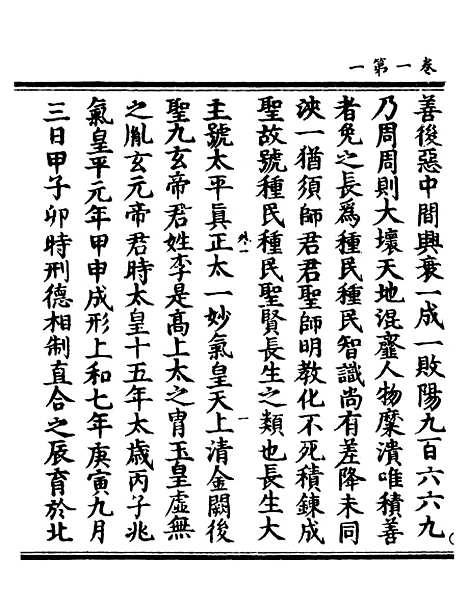 卷一第一
善後惡中間興衰一成一敗陽九百六六九
乃周周則大壞天地混齏人物糜潰唯積善
者免之長爲種民種民智識尚有差降未同
浹一猶須師君君聖師明教化不死積鍊成
聖故號種民種民聖賢長生之類也長生大
主號太平眞正太一妙氣皇天上清金闕後
聖九玄帝君姓李是高上太之胄玉皇虛無
之胤玄元帝君時太皇十五年太歲丙子兆
氣皇平元年甲申成形上和七年庚寅九月
三日甲子卯時刑德相制直合之辰育於北
外一
一